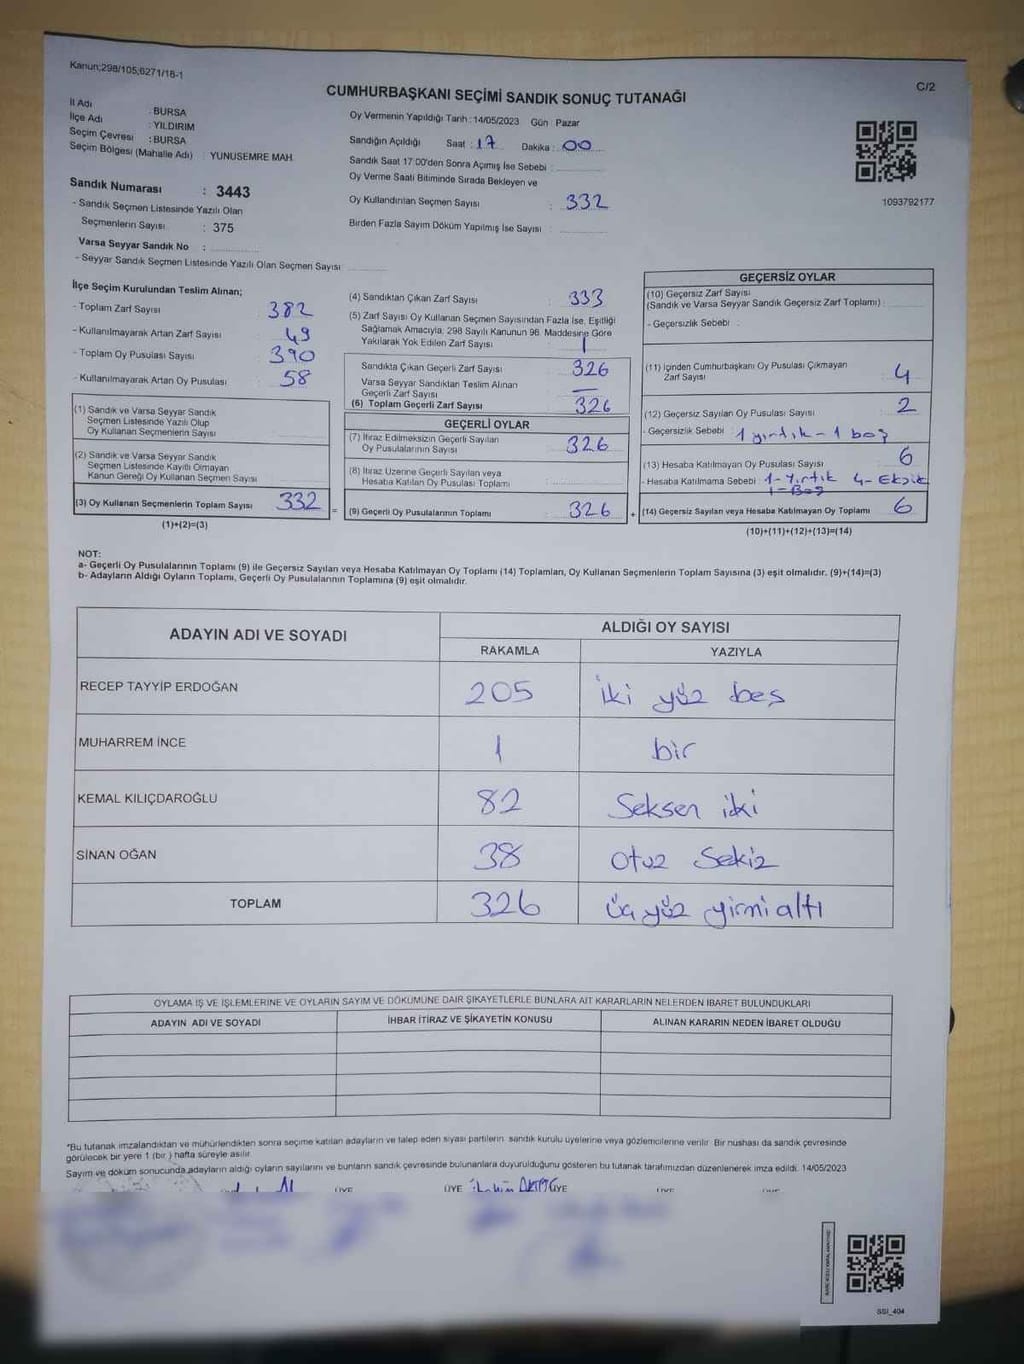 Kanun;298/105;6271/18-1
C/2
CUMHURBAŞKANI SEÇİMİ SANDIK SONUÇ TUTANAĞI
İl Adı : BURSA
İlçe Adı : YILDIRIM
Seçim Çevresi : BURSA
Seçim Bölgesi (Mahalle Adı) : YUNUSEMRE MAH.
Sandık Numarası : 3443
- Sandık Seçmen Listesinde Yazılı Olan
Seçmenlerin Sayısı : 375
Varsa Seyyar Sandık No :
- Seyyar Sandık Seçmen Listesinde Yazılı Olan Seçmen Sayısı
Oy Vermenin Yapıldığı Tarih : 14/05/2023 Gün : Pazar
Sandığın Açıldığı Saat : 17 Dakika : 00
Sandık Saat 17:00'den Sonra Açımış İse Sebebi :
Oy Verme Saati Bitiminde Sırada Bekleyen ve
Oy Kullandırılan Seçmen Sayısı : 332
Birden Fazla Sayım Döküm Yapılmış İse Sayısı :
1093792177
İlçe Seçim Kurulundan Teslim Alınan;
- Toplam Zarf Sayısı : 382
- Kullanılmayarak Artan Zarf Sayısı : 49
- Toplam Oy Pusulası Sayısı : 390
- Kullanılmayarak Artan Oy Pusulası : 58
(1) Sandık ve Varsa Seyyar Sandık
Seçmen Listesinde Yazılı Olup
Oy Kullanan Seçmenlerin Sayısı
(2) Sandık ve Varsa Seyyar Sandık
Seçmen Listesinde Kayıtlı Olmayan
Kanun Gereği Oy Kullanan Seçmen Sayısı
(3) Oy Kullanan Seçmenlerin Toplam Sayısı 332
(1)+(2)=(3)
(4) Sandıktan Çıkan Zarf Sayısı : 333
(5) Zarf Sayısı Oy Kullanan Seçmen Sayısından Fazla İse, Eşitliği
Sağlamak Amacıyla, 298 Sayılı Kanunun 98. Maddesine Göre
Yakılarak Yok Edilen Zarf Sayısı 1
Sandıkta Çıkan Geçerli Zarf Sayısı 326
Varsa Seyyar Sandıktan Teslim Alınan
Geçerli Zarf Sayısı —
(6) Toplam Geçerli Zarf Sayısı 326
GEÇERLİ OYLAR
(7) İtiraz Edilmeksizin Geçerli Sayılan
Oy Pusulalarının Sayısı 326
(8) İtiraz Üzerine Geçerli Sayılan veya
Hesaba Katılan Oy Pusulası Toplamı
= (9) Geçerli Oy Pusulalarının Toplamı 326
GEÇERSİZ OYLAR
(10) Geçersiz Zarf Sayısı
(Sandık ve Varsa Seyyar Sandık Geçersiz Zarf Toplamı) :
- Geçersizlik Sebebi :
(11) İçinden Cumhurbaşkanı Oy Pusulası Çıkmayan
Zarf Sayısı 4
(12) Geçersiz Sayılan Oy Pusulası Sayısı 2
- Geçersizlik Sebebi 1 yırtık - 1 boş
(13) Hesaba Katılmayan Oy Pusulası Sayısı 6
- Hesaba Katılmama Sebebi 1- Yırtık 4- Eksik
1- Boş
+ (14) Geçersiz Sayılan veya Hesaba Katılmayan Oy Toplamı 6
(10)+(11)+(12)+(13)=(14)
NOT:
a- Geçerli Oy Pusulalarının Toplamı (9) ile Geçersiz Sayılan veya Hesaba Katılmayan Oy Toplamı (14) Toplamları, Oy Kullanan Seçmenlerin Toplam Sayısına (3) eşit olmalıdır. (9)+(14)=(3)
b- Adayların Aldığı Oyların Toplamı, Geçerli Oy Pusulalarının Toplamına (9) eşit olmalıdır.
ADAYIN ADI VE SOYADI
ALDIĞI OY SAYISI
RAKAMLA YAZIYLA
RECEP TAYYİP ERDOĞAN 205 iki yüz beş
MUHARREM İNCE 1 bir
KEMAL KILIÇDAROĞLU 82 Seksen iki
SİNAN OĞAN 38 otuz Sekiz
TOPLAM 326 üç yüz yirmi altı
OYLAMA İŞ VE İŞLEMLERİNE VE OYLARIN SAYIM VE DÖKÜMÜNE DAİR ŞİKAYETLERLE BUNLARA AİT KARARLARIN NELERDEN İBARET BULUNDUKLARI
ADAYIN ADI VE SOYADI İHBAR İTİRAZ VE ŞİKAYETİN KONUSU ALINAN KARARIN NEDEN İBARET OLDUĞU
*Bu tutanak imzalandıktan ve mühürlendikten sonra seçime katılan adayların ve talep eden siyasi partilerin sandık kurulu üyelerine veya gözlemcilerine verilir. Bir nüshası da sandık çevresinde
görülecek bir yere 1 (bir ) hafta süreyle asılır.
Sayım ve döküm sonucunda adayların aldığı oyların sayılarını ve bunların sandık çevresinde bulunanlara duyurulduğunu gösteren bu tutanak tarafımızdan düzenlenerek imza edildi. 14/05/2023
ÜYE ÜYE ÜYE ÜYE
SSI_404